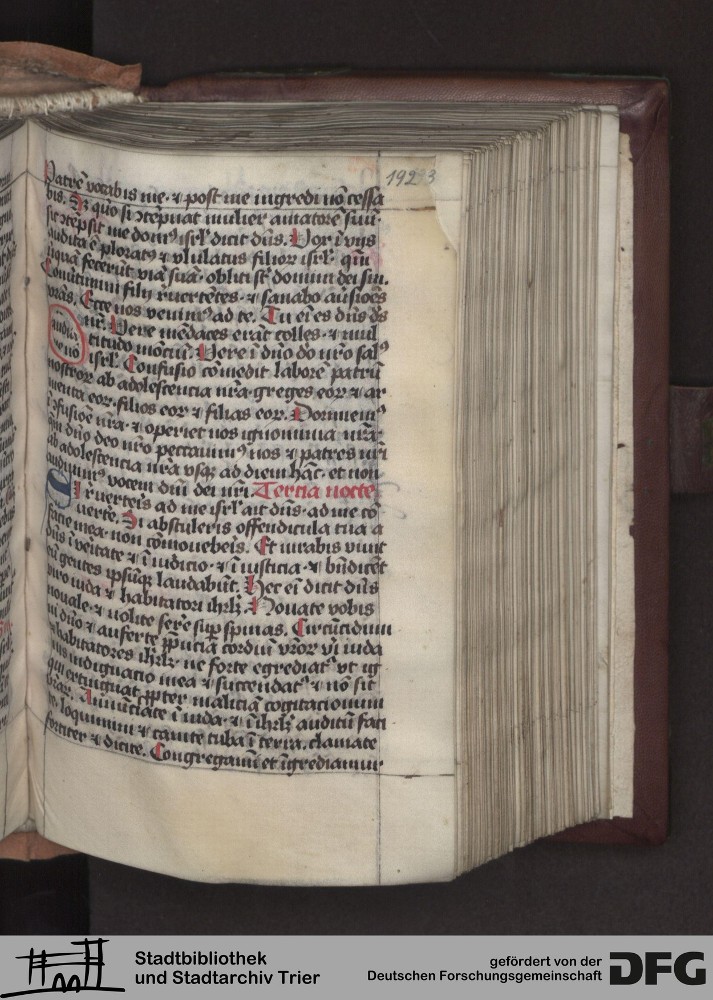 192 3
Patrē vocabis me · ⁊ post me ingredi nō cessa
bis. Sꝫ quō si ↄtēpnat mulier amatorē suū ·
sic ↄtēpsit me domꝰ isrl̕ dicit dn̄s. Vox ī vijs
audita ē ploratꝰ ⁊ vlulatus filior isrl̕ · qm̄
iniquā fecerūt viā suā · obliti sūt domini dei sui.
Conūtimini filij r̄uertētes · ⁊ sanabo aūsiōes
vr̄as. Ecce nos venimꝰ ad te. Tu ei es dn̄s ds̄
nr̄. Vere mēdaces erāt colles · ⁊ mul
titudo mōciū. Vere ī dn̄o dō nr̄o salꝰ
isrl̕. Confusio cōmedit laborē patrū
nostror ab adolescencia nr̄a · greges eor ⁊ ar
menta eor · filios eor ⁊ filias eor. Dormiemꝰ
ī ↄfusiōe nr̄a · ⁊ operiet nos ignominia nr̄a ·
qm̄ dn̄o deo nr̄o peccauimꝰ nos ⁊ patres nr̄i
ab adolescencia nr̄a vsqꝫ ad diem hāc · et non
audiuimꝰ vocem dn̄i dei nr̄i. Tercia nocte
SI r̄uerteris ad me isrl̕ ait dn̄s · ad me cō
uerte. Si abstuleris offendicula tua a
facie mea · non cōmoueberis. Et iurabis viuit
dn̄s ī veritate ⁊ ī iudicio · ⁊ ī iusticia · ⁊ bn̄dicēt
eū gentes ipsūqꝫ laudabūt. Hec ei dicit dn̄s
viro iuda ⁊ habitatori ihrlꝫ. Nouate vobis
nouale · ⁊ nolite serēe suꝑ spinas. Circūcidimi
ni dn̄o ⁊ auferte ꝑpuciā cordiū vr̄or viri iuda
⁊ habitatores ihrlꝫ · ne forte egrediatꝰ vt ig
nis indignacio mea ⁊ succendatꝰ ⁊ nō sit
qui extinguat ꝓpter maliciā cogitacionum
vr̄ar. Annūciate ī iuda · ⁊ ī ihrlꝫ auditū faci
te. loquimini ⁊ canite tuba ī terra. clamate
fortiter ⁊ dicite. Congregamī et īgrediamur
Stadtbibliothek
und Stadtarchiv Trier
gefördert von der
Deutschen Forschungsgemeinschaft DFG